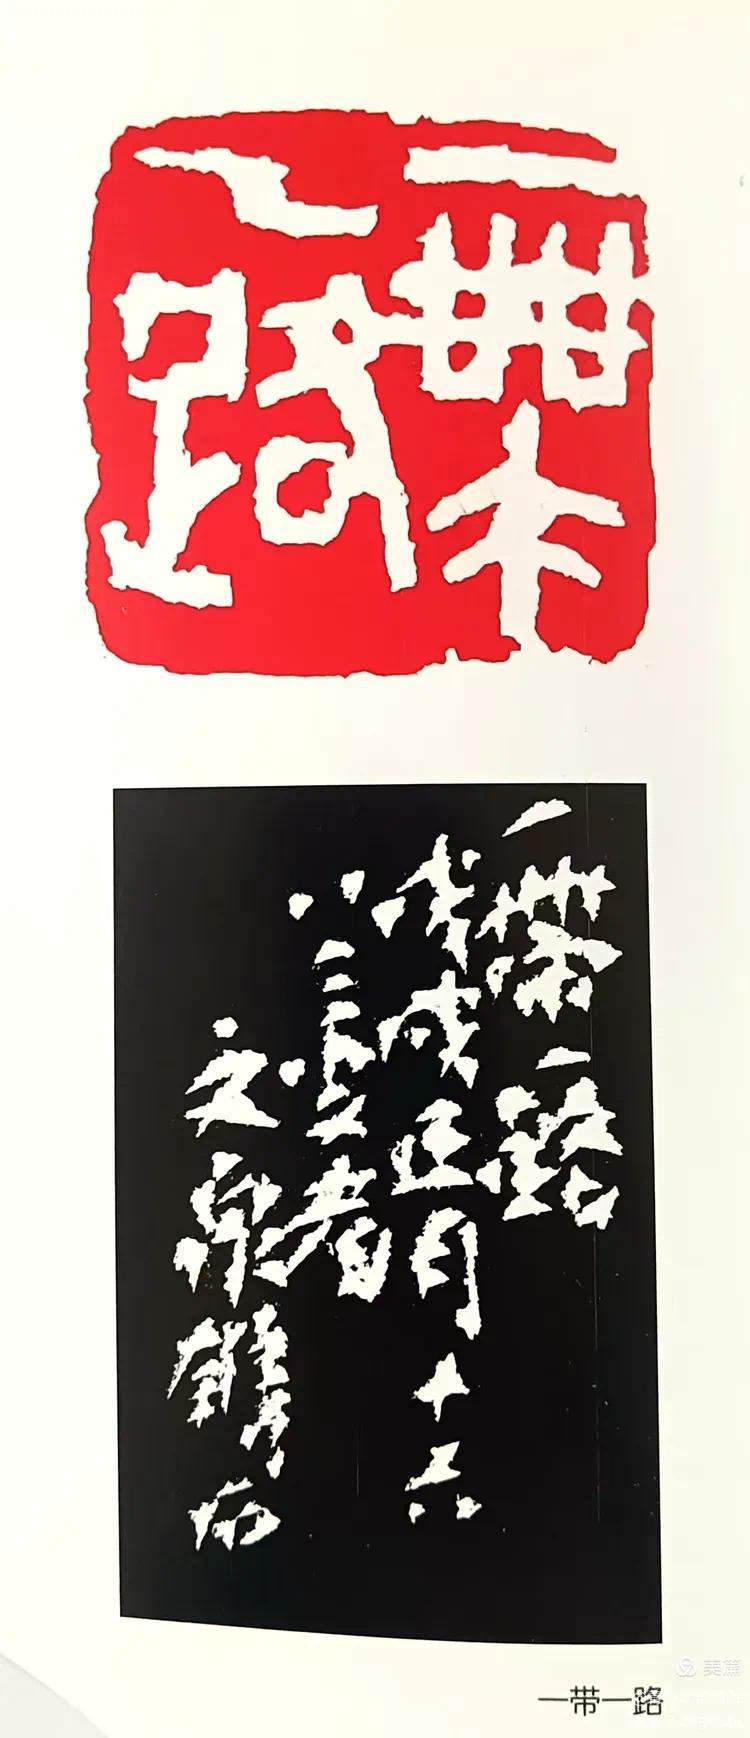 一带
一路
一带一路
戊戌正月十六
八三叟者
文泉
一带一路
美篇